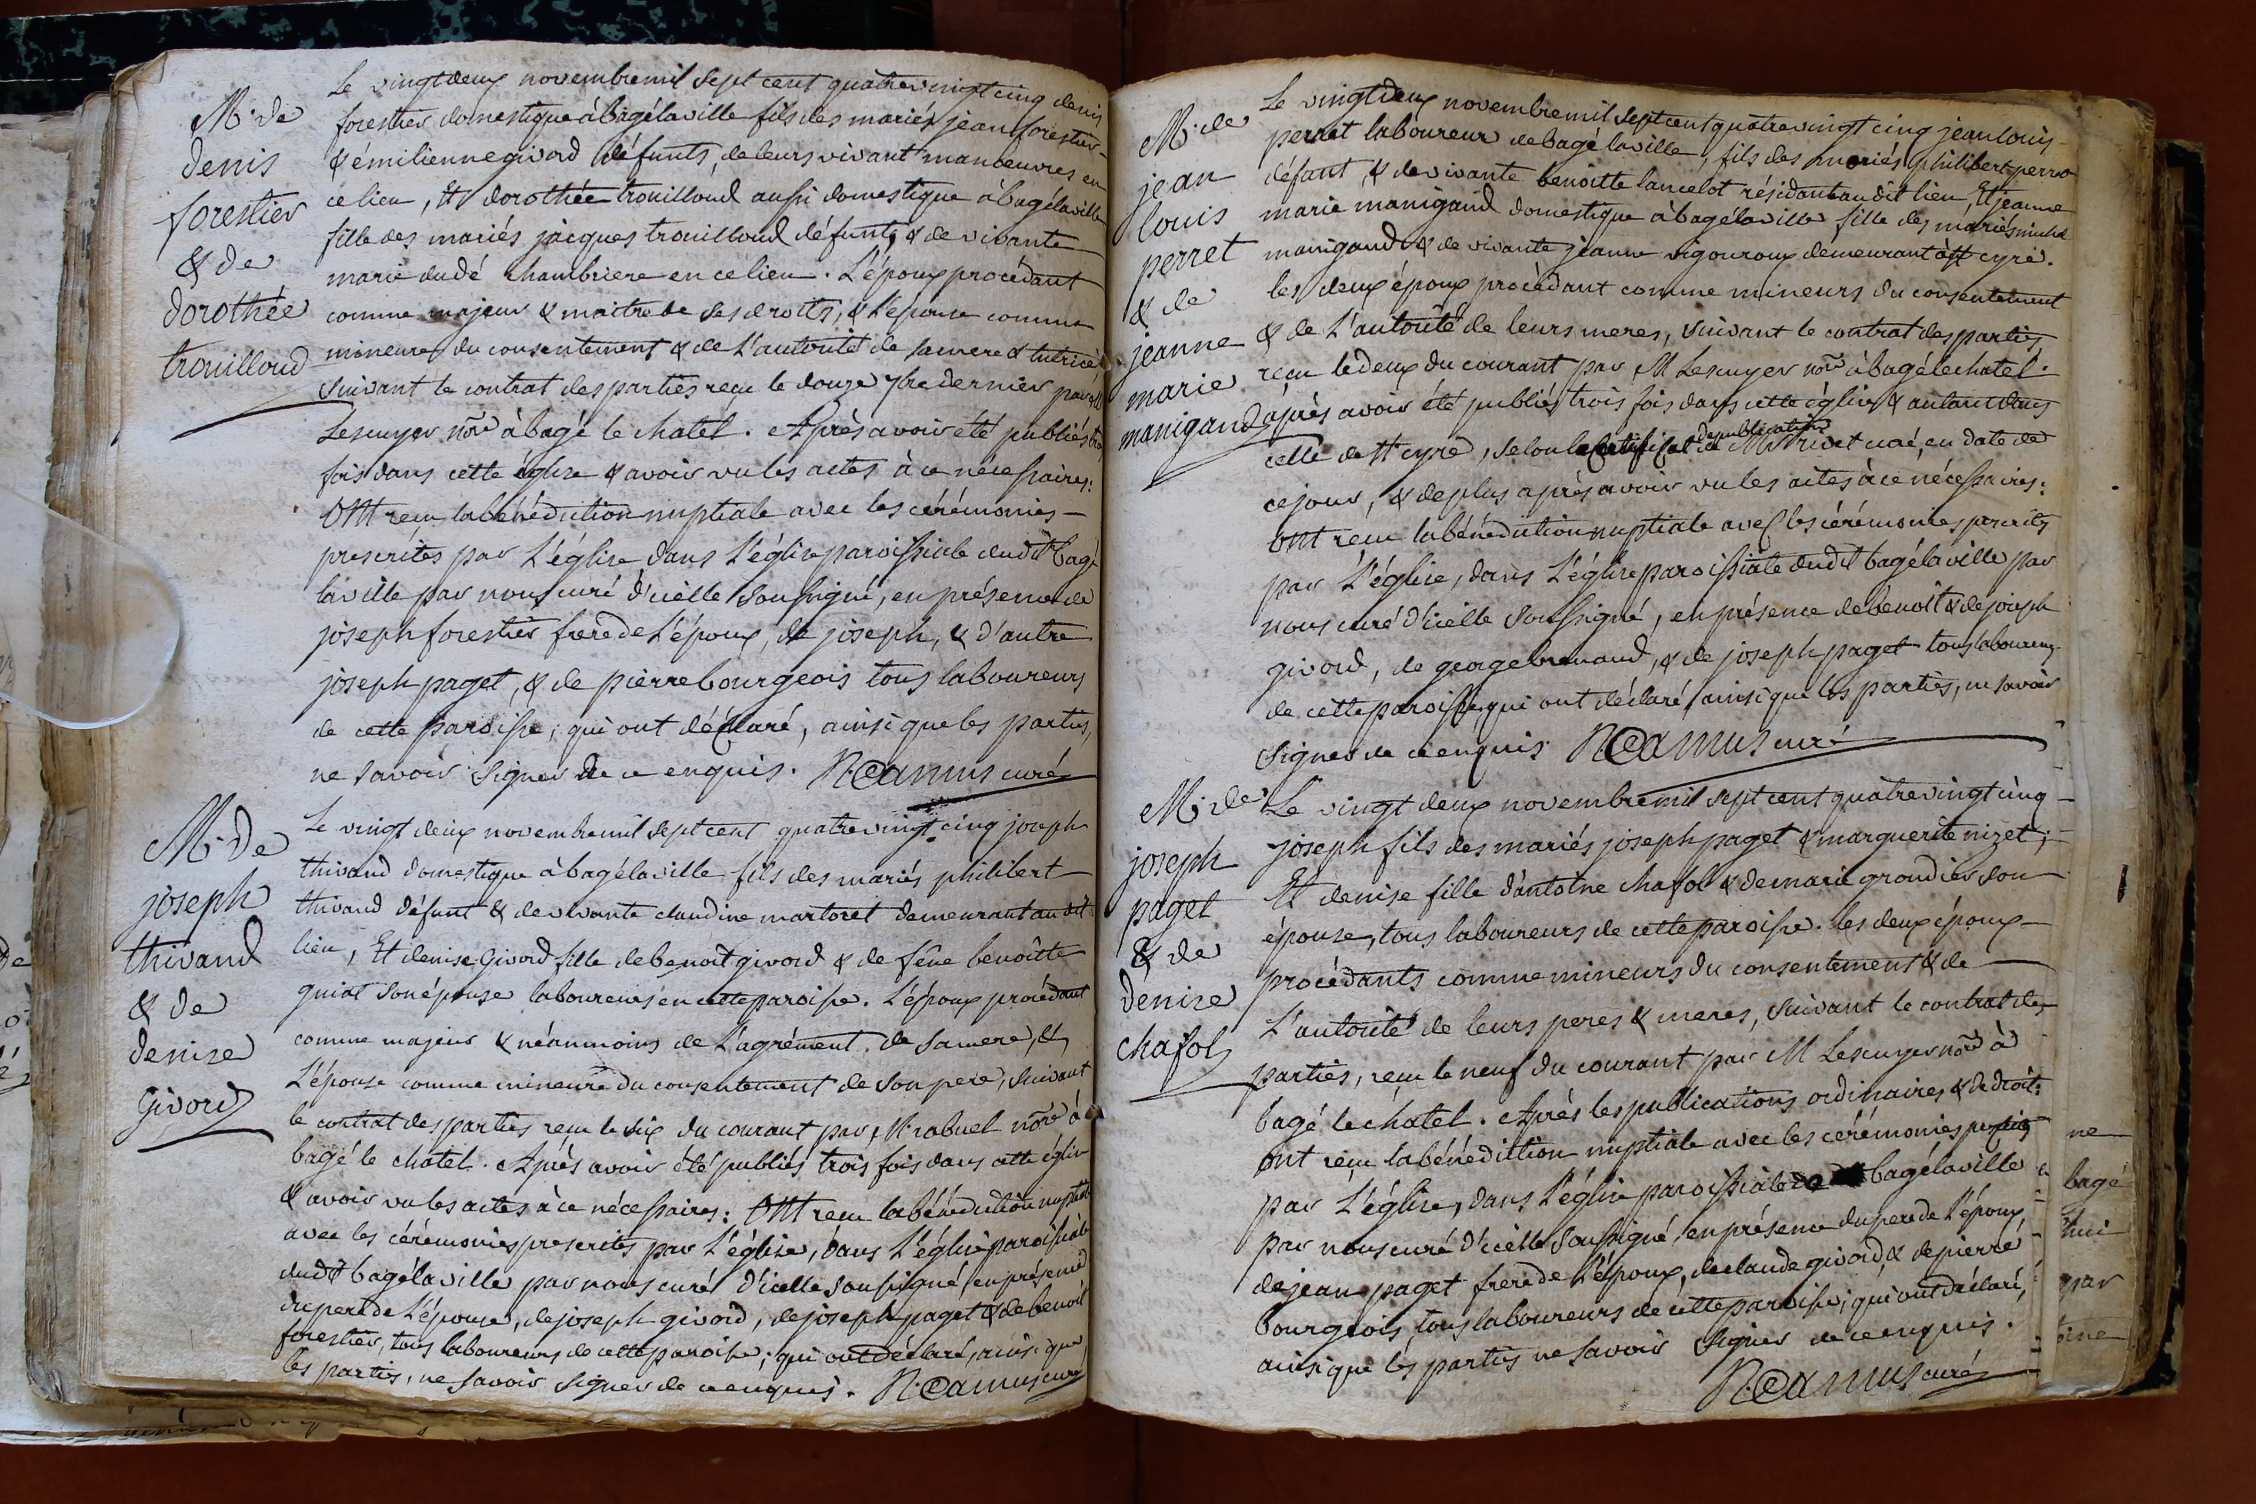 M. de
denis
forestier
& de
dorothée
trouilloud
Le vingt deux novembre mil sept cent quatre vingt cinq denis
forestier domestique à bagé la ville fils des mariés jean forestier
& émilienne givord défunts, de leurs vivant manoeuvres en
ce lieu, Et dorothée trouilloud aussi domestique à bagé la ville
fille des mariés jacques trouilloud défunt, & de vivante
marie dudé chambriere en ce lieu. L'époux procédant
comme majeur & maitre de ses droits, & l'épouse comme
mineure, du consentement & de l'autorité de sa mere & tutrice
suivant le contrat des parties reçu le douze 7bre dernier par M
Lescuyer nore à bagé le chatel. Après avoir été publiés trois
fois dans cette église & avoir vu les actes à ce nécessaires:
Ont reçu la bénédiction nuptiale avec les cérémonies
prescrites par L'église dans L'église paroissiale dudit bagé
la ville par nous curé d'icelle soussigné, en présence de
joseph forestier frere de L'époux, de joseph, & d'autre
joseph paget, & de pierre bourgeois tous laboureurs
de cette paroisse; qui ont déclaré, ainsi que les parties,
ne savoir signer de ce enquis. N. Camus curé
M. de
joseph
thivaud
& de
denise
Givord
Le vingt deux novembre mil sept cent quatre vingt cinq joseph
thivaud domestique à bagé la ville fils des mariés philibert
thivaud défunt & de vivante claudine martoret demeurant au dit
lieu, Et denise Givord fille de benoit givord & de fëue benoîtte
guiat son épouse laboureurs en cette paroisse. L'époux procédant
comme majeur & néanmoins de L'agrément de sa mere, &
L'épouse comme mineure du consentement de son pere, suivant
le contrat des parties reçu le six du courant par M. rabuel nore à
bagé le chatel. Après avoir été publiés trois fois dans cette église
& avoir vu les actes à ce nécessaires: Ont reçu la bénédiction nuptiale
avec les cérémonies prescrites par L'église, dans L'église paroissiale
dudit bagé la ville par nous curé d'icelle soussigné, en présence
du pere de L'épouse, de joseph givord, de joseph paget & de benoit
forestier, tous laboureurs de cette paroisse; qui ont déclaré, ainsi que
les parties, ne savoir signer de ce enquis. N. Camus curé
M. de
jean
louis
perret
& de
jeanne
marie
manigaud
Le vingt deux novembre mil sept cent quatre vingt cinq jean louis
perret laboureur de bagé la ville, fils des mariés philibert perret
défunt, & de vivante benoitte lancelot résidant au dit lieu, Et jeanne
marie manigaud domestique à bagé la ville fille des mariés michel
manigaud & de vivante jeanne vigouroux demeurant à st cyre.
les deux époux procèdant comme mineurs du consentement
& de L'autorité de leurs meres, suivant le contrat des parties
reçu le deux du courant par M Lescuyer nore à bagé le chatel.
après avoir été publiés trois fois dans cette église & autant dans
celle de st cyre, selon le certificat de publication de M curé, en date de
ce jour, & de plus après avoir vu les actes à ce nécessaires:
Ont reçu la bénédiction nuptiale avec les cérémonies prescrites
par L'église, dans L'église paroissiale dudit bagé la ville par
nous curé d'icelle soussigné, en présence de benoît & de joseph
givord, de george brenaud, & de joseph paget tous laboureurs
de cette paroisse, qui ont déclaré, ainsi que les parties, ne savoir
signer de ce enquis N. Camus curé
M. de
joseph
paget
& de
denise
chafol
Le vingt deux novembre mil sept cent quatre vingt cinq
joseph fils des mariés joseph paget & marguerite nizet;
Et denise fille d'antoine chafol & de marie grondier son
épouse, tous laboureurs de cette paroisse. les deux époux
procèdants comme mineurs du consentement & de
L'autorité de leurs peres & meres, suivant le contrat des
parties, reçu le neuf du courant par M Lescuyer nore à
bagé le châtel. Après les publications ordinaires & de droit:
Ont reçu la bénédiction nuptiale avec les cérémonies prescrites
par L'église, dans L'église paroissiale de bagé la ville
par nous curé d'icelle soussigné en présence du pere de L'époux
de jean paget frere de L'époux, de claude givord, & de pierre
bourgeois, tous laboureurs de cette paroisse; qui ont déclaré,
ainsi que les parties ne savoir signer de ce enquis.
N. Camus curé
ne
bagé
par